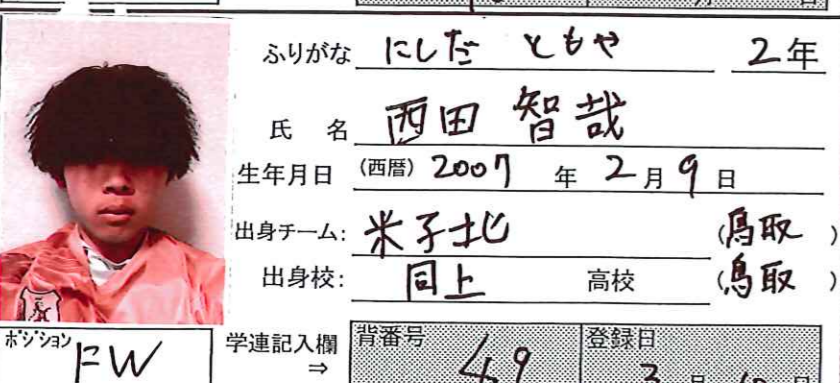 ふりがな にしだ ともや 2年
氏 名 西田 智哉
生年月日 (西暦) 2007 年 2月 9日
出身チーム: 米子北 (鳥取)
出身校: 同上 高校 (鳥取)
ポジション FW
学連記入欄 ⇒ 背番号 49 登録日 3月 日